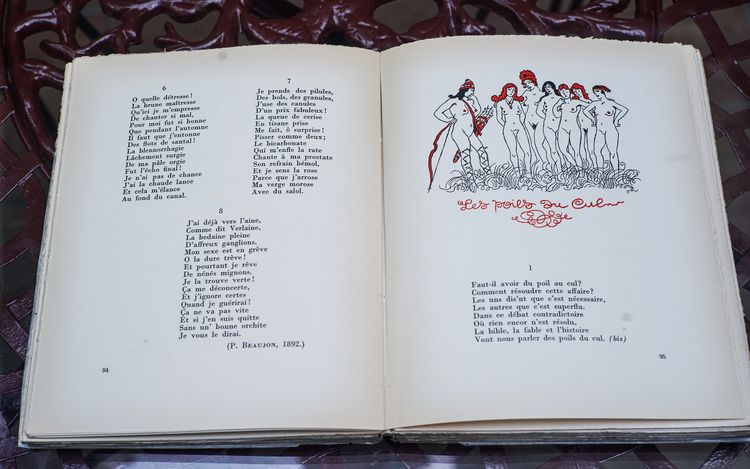 6
O quelle détresse !
La brune maîtresse
Qu'ici je m'empresse
De chanter si mal,
Pour moi fut si bonne
Que pendant l'automne
Il faut que j'entonne
Des flots de santal !
La blennorrhagie
Lâchement surgie
De ma pâle orgie
Fut l'écho final !
Je n'ai pas de chance
J'ai la chaude lance
Et cela m'élance
Au fond du canal.
7
Je prends des pilules,
Des bols, des granules,
J'use des canules
D'un prix fabuleux !
La queue de cerise
En tisane prise
Me fait, ô surprise !
Pisser comme deux ;
Le bicarbonate
Qui m'enfle la rate
Chante à ma prostate
Son refrain bémol,
Et je sens la rose
Parce que j'arrose
Ma verge morose
Avec du salol.
8
J'ai déjà vers l'aine,
Comme dit Verlaine,
La bedaine pleine
D'affreux ganglions.
Mon sexe est en grève
O la dure trêve !
Et pourtant je rêve
De nénés mignons.
Je la trouve verte !
Ça me déconcerte,
Et j'ignore certes
Quand je guérirai !
Ça ne va pas vite
Et si j'en suis quitte
Sans un' bonne orchite
Je vous le dirai.
(P. BEAUJON, 1892.)
94
Les poils du Cul
1
Faut-il avoir du poil au cul ?
Comment résoudre cette affaire ?
Les uns dis'nt que c'est nécessaire,
Les autres que c'est superflu.
Dans ce débat contradictoire
Où rien encor n'est résolu,
La bible, la fable et l'histoire
Vont nous parler des poils du cul. (bis)
95